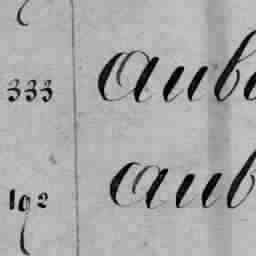 333 aub
192 aub